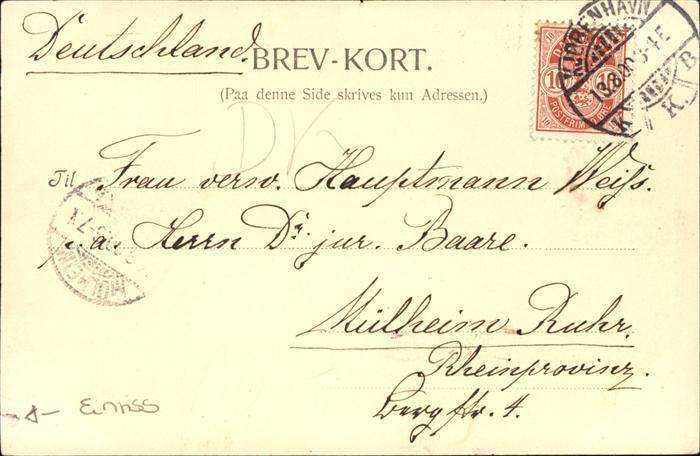 Deutschland.
BREV-KORT.
(Paa denne Side skrives kun Adressen.)
KJØBENHAVN
13.8.00 3-4 E
K K B
10
POSTFRIM
DK
Til Frau verw. Hauptmann Weiß.
p. ad. Herrn Dr. jur. Baare.
Mülheim Ruhr.
Rheinprovinz.
Bergstr. 4.
MÜLHEIM
7-8